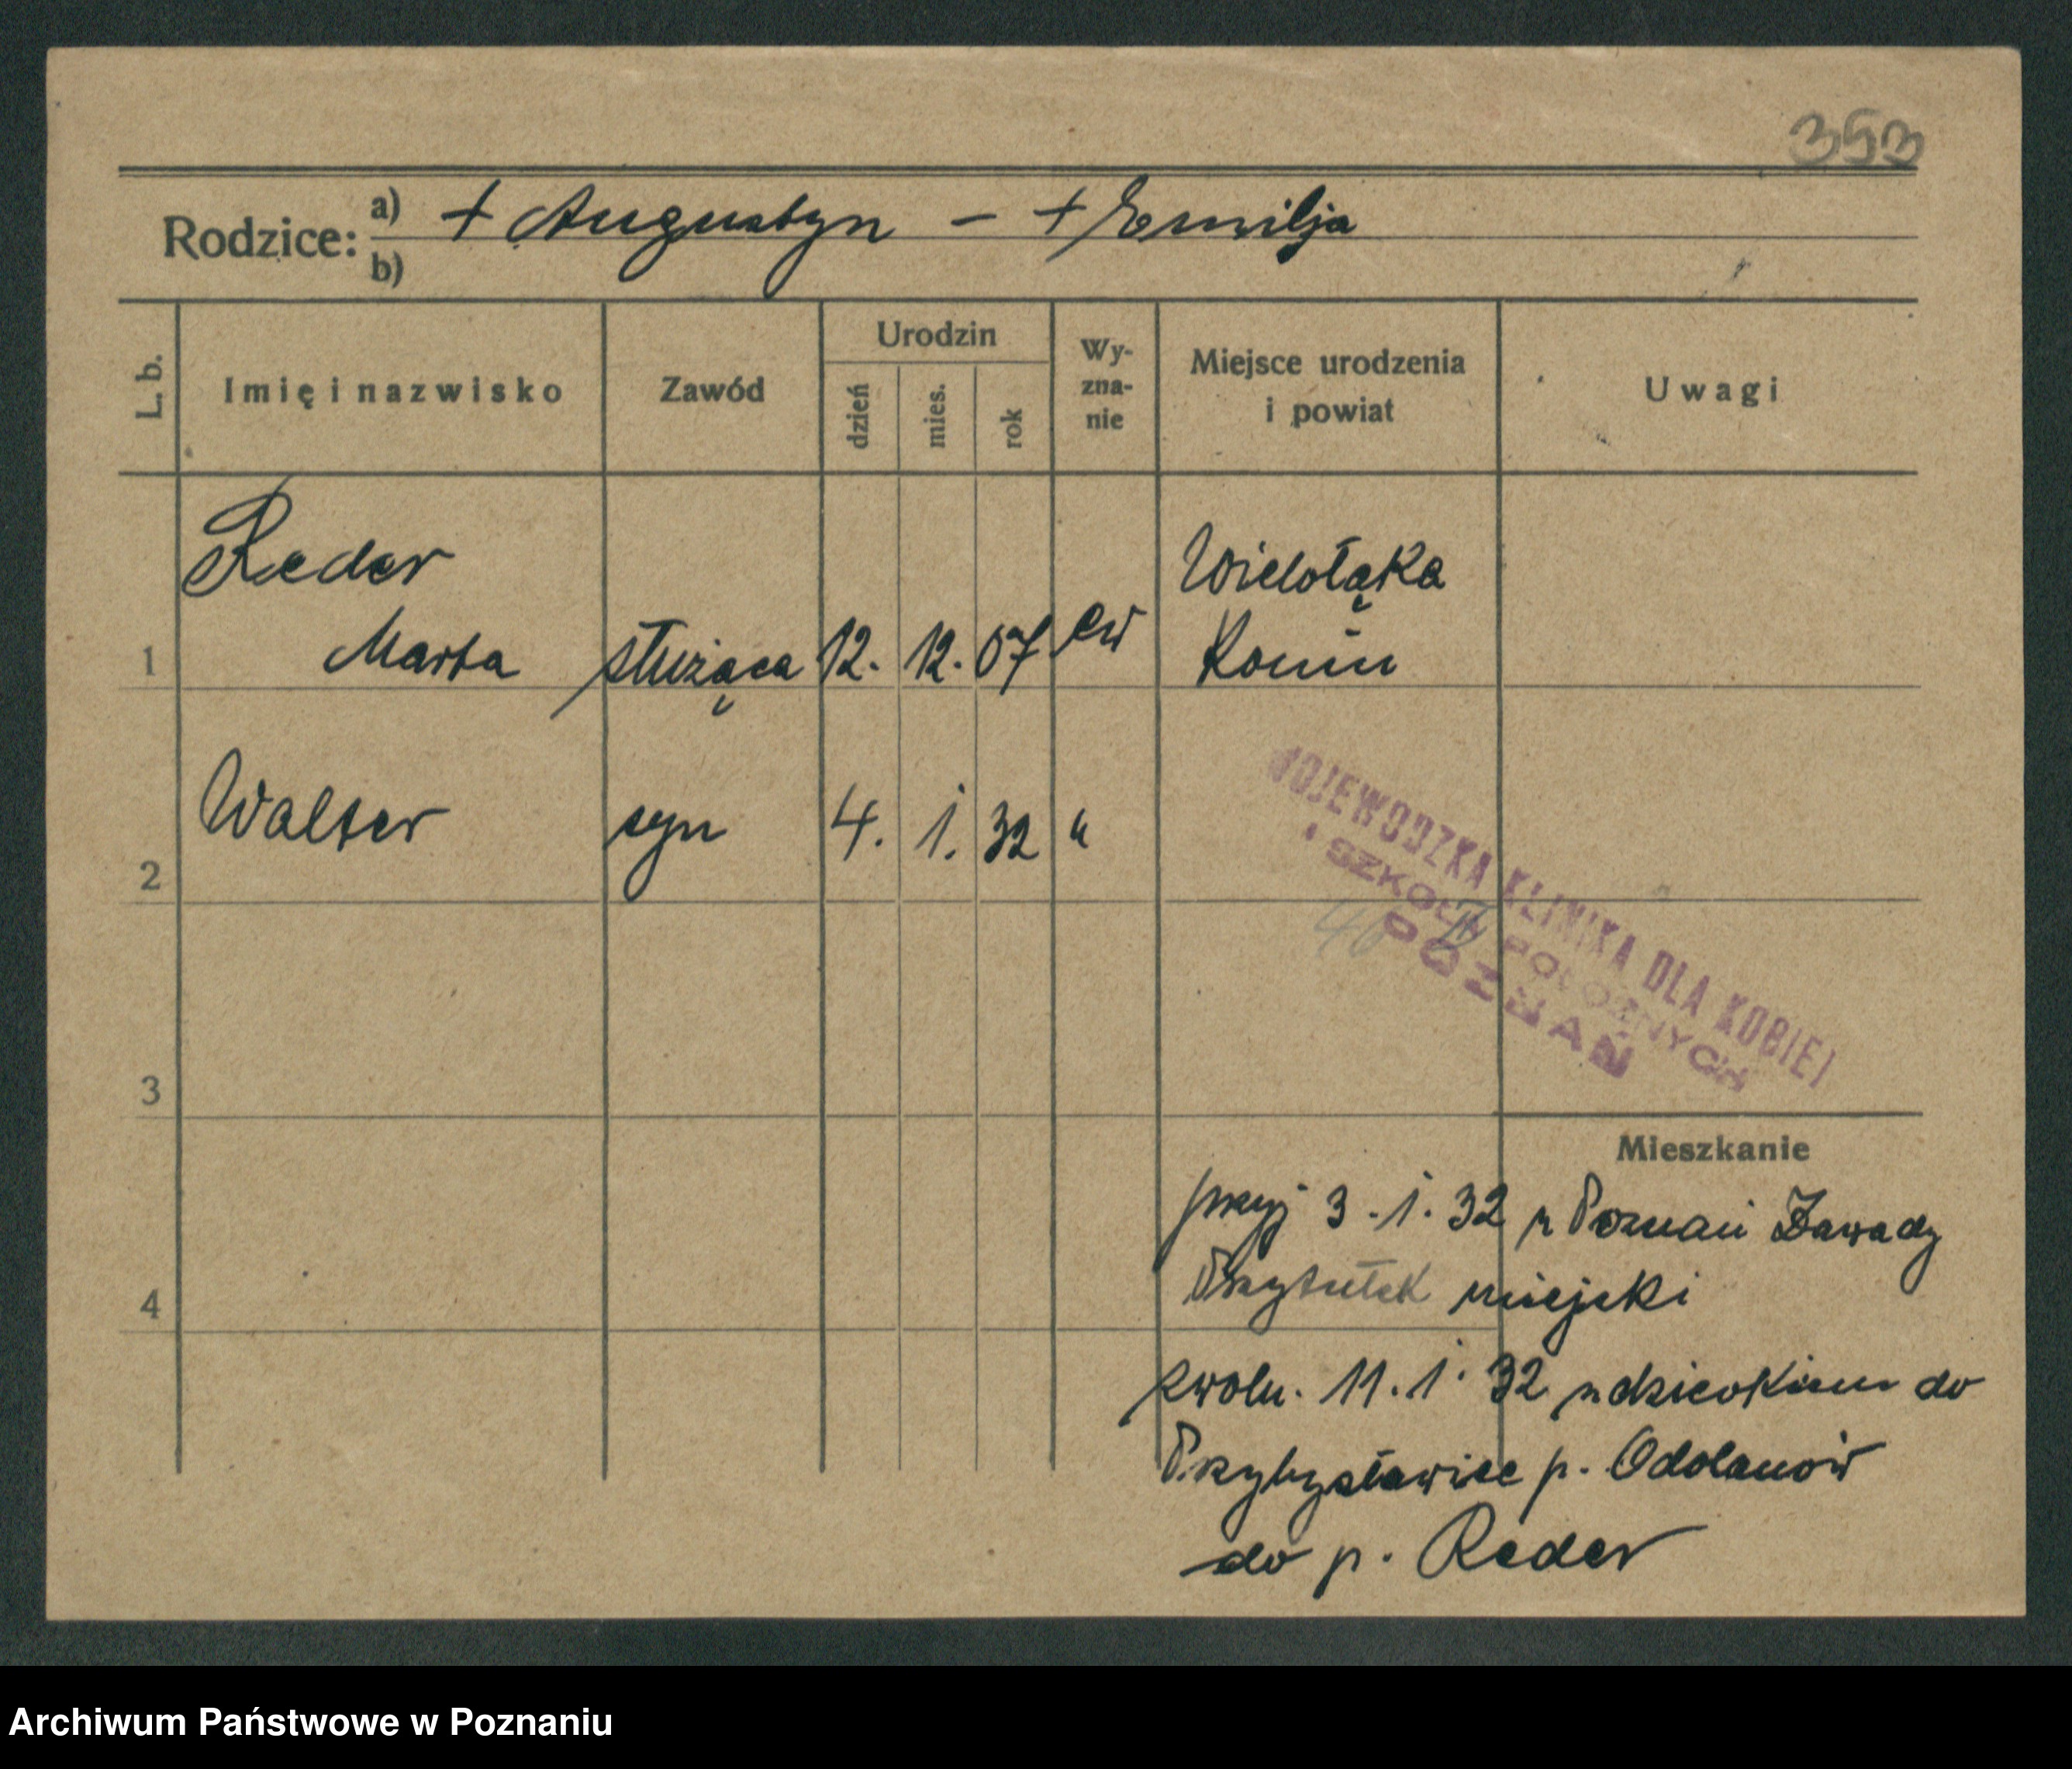 353
Rodzice: a) + Augustyn - + Emilja
b)
L. b. Imię i nazwisko Zawód Urodzin dzień mies. rok Wy-zna-nie Miejsce urodzenia i powiat Uwagi
Reder Wielołąka
1 Marta służąca 12. 12. 07 ew Konin
2 Walter syn 4. 1. 32 "
WOJEWODZKA KLINIKA DLA KOBIET
i SZKOŁA POŁOŻNYCH
POZNAŃ
3
Mieszkanie
przyj 3.1.32 z Poznań Zawady
4 Przytułek miejski
zwoln. 11.1.32 z dzieckiem do
Przybysławice p. Odolanów
do p. Reder
Archiwum Państwowe w Poznaniu